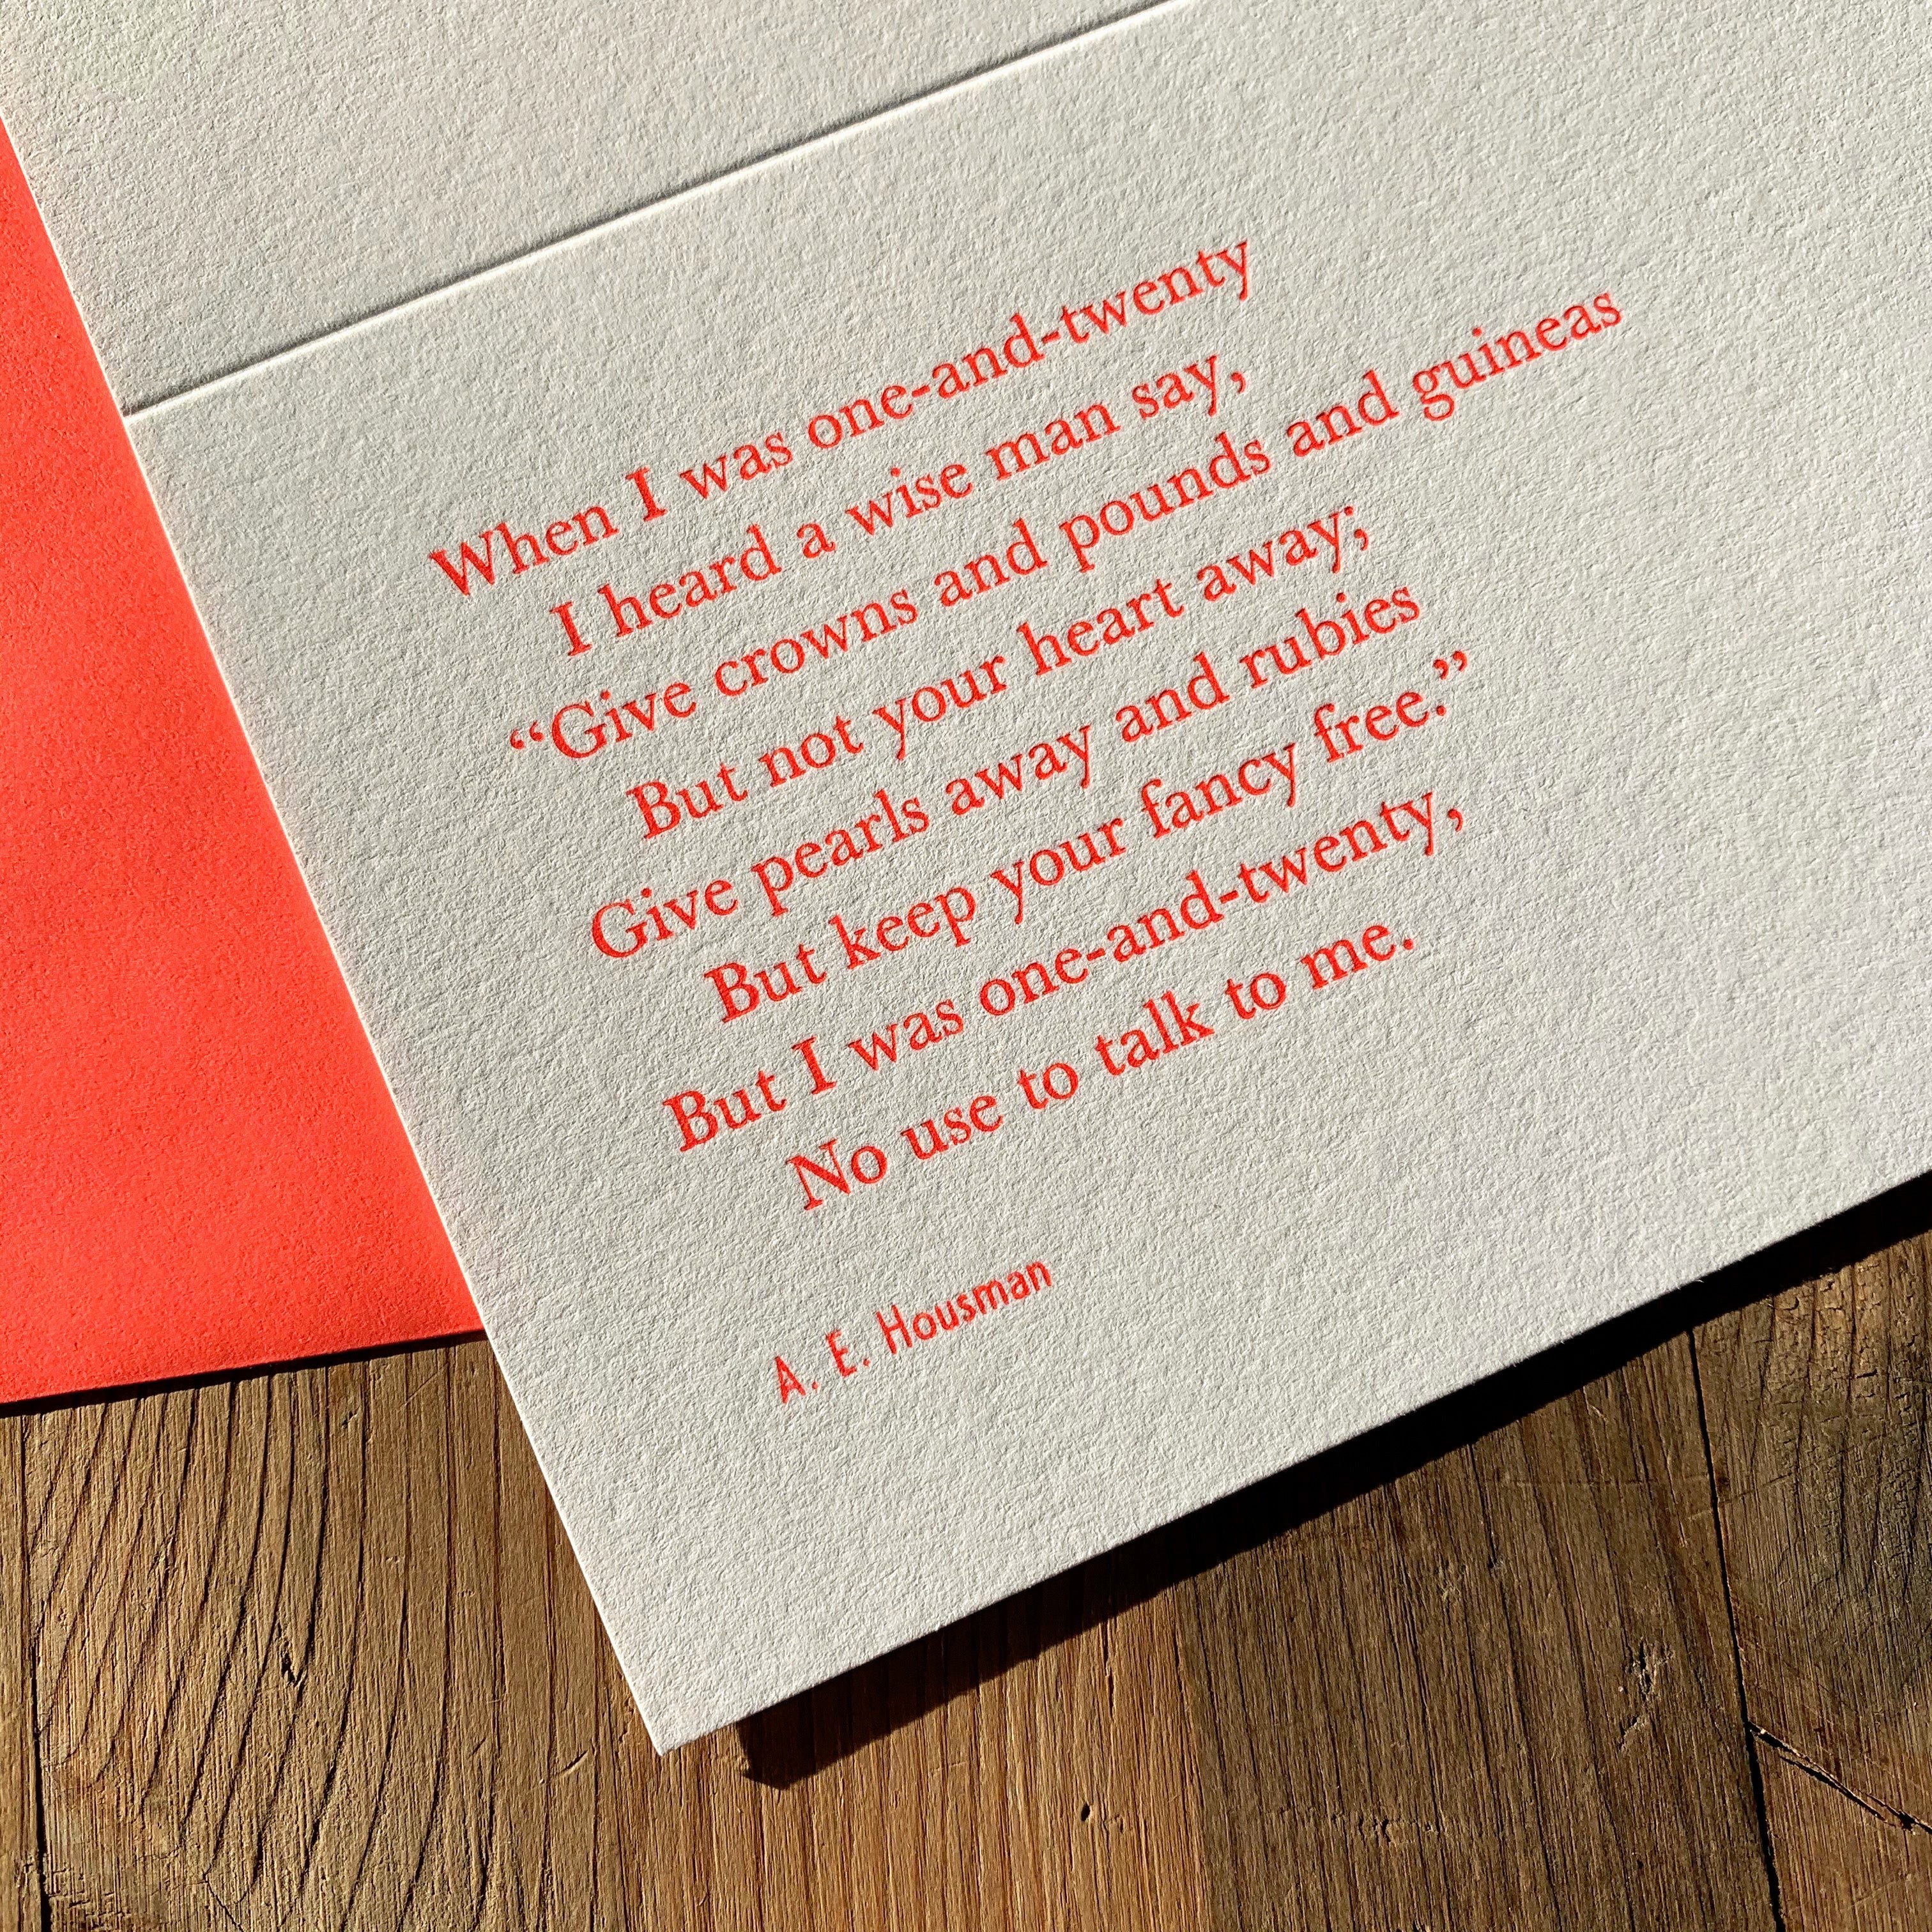 When I was one-and-twenty
I heard a wise man say,
“Give crowns and pounds and guineas
But not your heart away;
Give pearls away and rubies
But keep your fancy free.”
But I was one-and-twenty,
No use to talk to me.
A. E. Housman